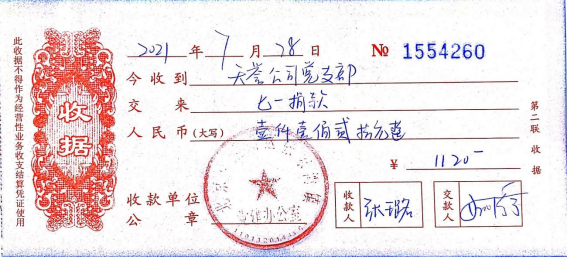 此收据不得作为经营性业务收支结算凭证使用
收据
2021年7月28日 № 1554260
今收到 天誉公司党支部
交来 七一捐款
人民币(大写) 壹仟壹佰贰拾元整
¥ 1120-
收款单位公章
收款人 张璐
交款人
第二联 收据